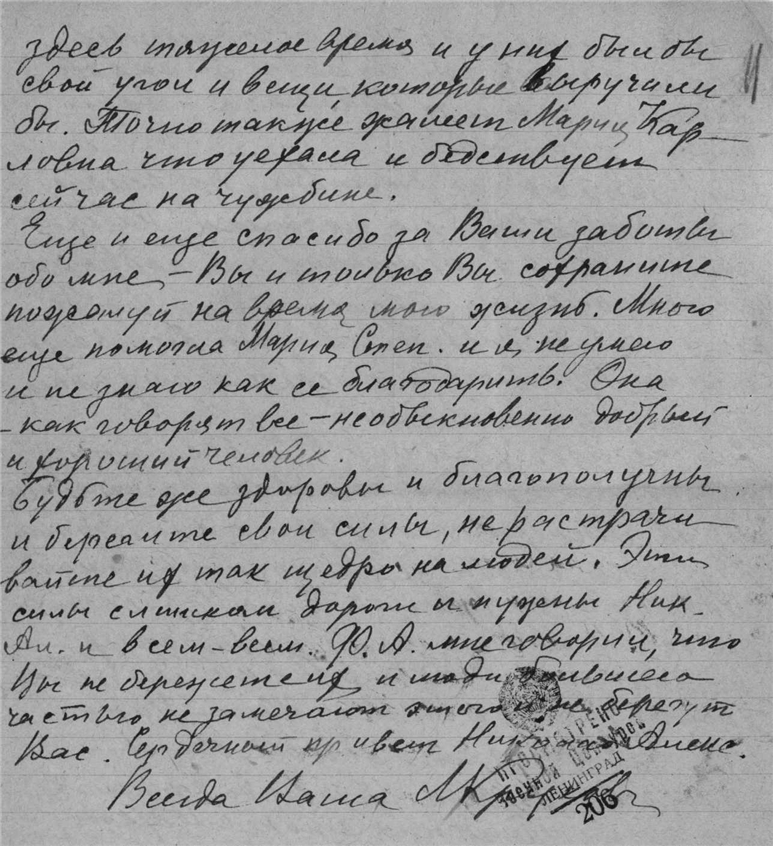 здесь тяжелое время и у них был бы
свой угол и вещи, которые выручили
бы. Точно также жалеет Мария Кар-
ловна что уехала и бедствует
сейчас на чужбине.
Еще и еще спасибо за Ваши заботы
обо мне, – Вы и только Вы сохраните
пожалуй на время мою жизнь. Много
еще помогла Мария Степ. и я не умею
и не знаю как ее благодарить. Она
- как говорят все – необыкновенно добрый
и хороший человек.
Будьте же здоровы и благополучны
и берегите свои силы, не растрачи
вайте их так щедро на людей. Эти
силы слишком дороги и нужны Ник.
Ал. и всем-всем. Ф. А. мне говорил, что
Вы не бережетесь и люди большею
частью не замечают этого и не берегут
Вас. Сердечный привет Николаю Алекс.
Всегда Ваша
11
ПРОСМОТРЕНО
Военной Цензурой
ЛЕНИНГРАД
206